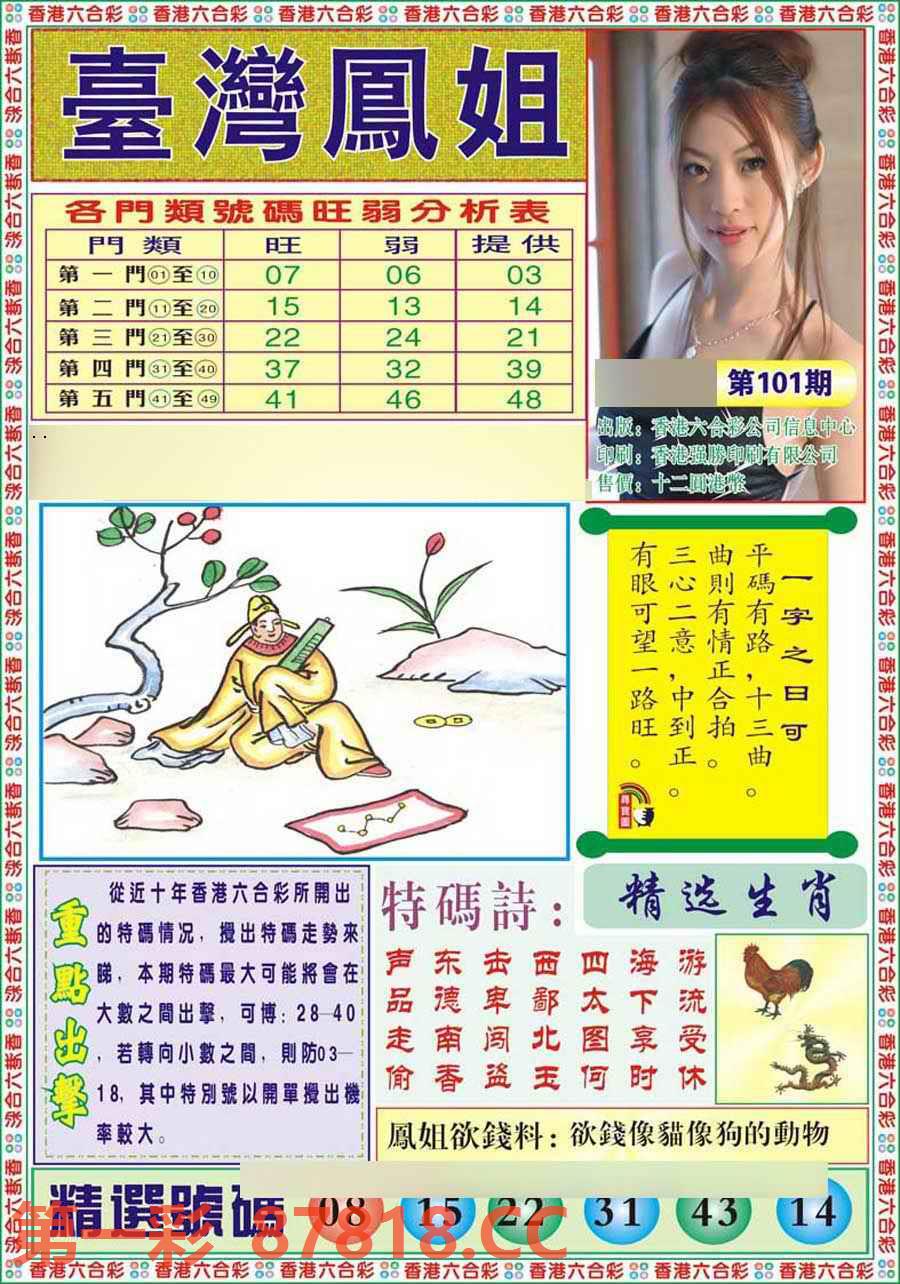 香港六合彩
臺灣鳳姐
各門類號碼旺弱分析表
門類 旺 弱 提供
第一門01至10 07 06 03
第二門11至20 15 13 14
第三門21至30 22 24 21
第四門31至40 37 32 39
第五門41至49 41 46 48
第101期
出版：香港六合彩公司信息中心
印刷：香港强勝印刷有限公司
售價：十二圓港幣
一字之曰可
平碼有路，十三曲。
曲則有情正合拍。
三心二意，中到正。
有眼可望一路旺。
尋寶圖
重點出擊
從近十年香港六合彩所開出
的特碼情况，攪出特碼走勢來
睇，本期特碼最大可能將會在
大數之間出擊，可博：28—40
，若轉向小數之間，則防03—
18，其中特別號以開單攪出機
率較大。
特碼詩：
声东击西四海游
品德卑鄙太下流
走南闯北图享受
偷香盗玉何时休
精选生肖
鳳姐欲錢料：欲錢像貓像狗的動物
精選號碼 08 15 22 31 43 14
第一彩 87818.CC